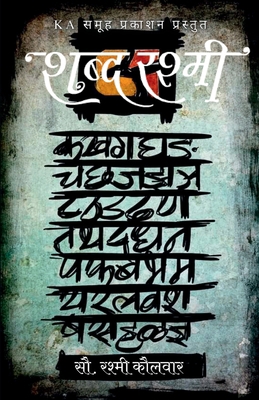 KA समूह प्रकाशन प्रस्तुत
शब्द रश्मी
क ख ग घ ङ
च छ ज झ ञ
ट ठ ड ढ ण
त थ द ध न
प फ ब भ म
य र ल व श
ष स ह ळ ज्ञ
सौ. रश्मी कौलवार